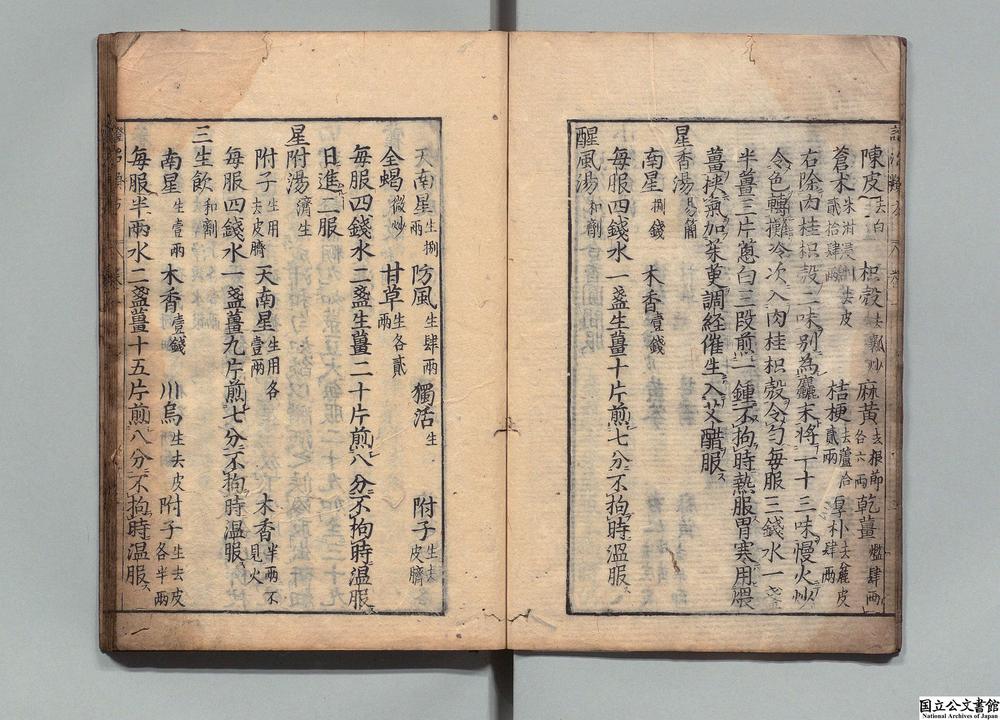 陳皮去白 枳殼去瓤炒 麻黄去根節各六兩 乾薑爁肆兩
蒼术米泔浸去皮貳拾肆兩 桔梗去蘆貳兩 厚朴去麄皮肆兩
右除肉桂枳殼二味别為麤末將一十三味慢火炒
令色轉攤冷次入肉桂枳殼令匀每服三錢水一盞
半薑三片蔥白三段煎一鍾不拘時熱服胃寒用煨
薑挾氣加茱萸調經催生入艾醋服
星香湯易簡
南星捌錢 木香壹錢
每服四錢水一盞生薑十片煎七分不拘時溫服
醒風湯和劑
天南星生捌兩 防風生肆兩 獨活生 附子生去皮臍
全蝎微炒 甘草生各貳兩
每服四錢水二盞生薑二十片煎八分不拘時温服
日進二服
星附湯濟生
附子生用去皮臍 天南星生用各壹兩 木香半兩不見火
每服四錢水一盞薑九片煎七分不拘時温服
三生飲和劑
南星生壹兩 木香壹錢 川烏生去皮 附子生去皮各半兩
每服半兩水二盞薑十五片煎八分不拘時温服
国立公文書館
National Archives of Japan